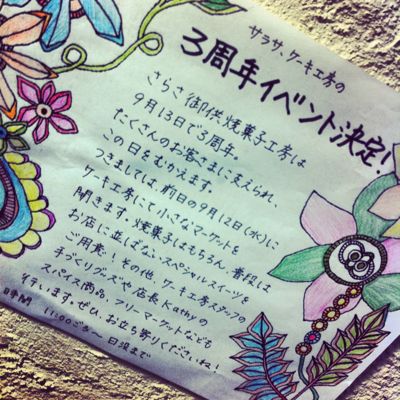 サラサ、ケーキ工房の
3周年イベント決定!
さらさ御供焼菓子工房は
9月13日で3周年。
たくさんのお客さまに支えられ、
この日をむかえます。
つきましては、前日の9月12日(水)に
ケーキ工房にて小さなマーケットを
開きます。焼菓子はもちろん、普段は
お店に並ばないスペシャルスイーツを
ご用意!その他、ケーキ工房スタッフの
手づくりグッズや店長Kathyの
スパイス商品、フリーマーケットなども
行います。ぜひ、お立ち寄りくださいね!
時間 11:00ごろ〜日没まで